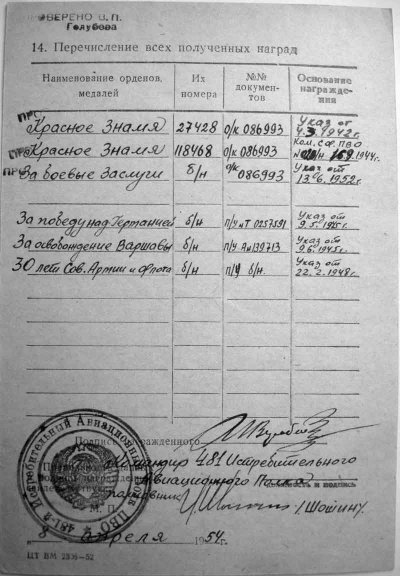 ПРОВЕРЕНО В.П.
Голубева
14. Перечисление всех полученных наград
Наименование орденов, медалей Их номера №№ документов Основание награждения
Красное Знамя 27428 о/к 086993 Указ от 4.3.1942г.
Красное Знамя 118468 о/к 086993 Ком. С.Ф. ПВО 1944г.
За боевые Заслуги б/н о/к 086993 Указ от 13.6.1952г.
За победу над Германией б/н п/у МТ 0257591 Указ от 9.5.1945г.
За освобождение Варшавы б/н п/у А№139713 Указ от 9.6.1945г.
30 лет Сов. Армии и Флота б/н п/у б/н. Указ от 22.2.1948г.
Подпись награжденного
Командир 481 Истребительного
Авиационного Полка
должность и подпись
/Шошин/
М. П.
апреля 1954г.
481-й Истребительный Авиационный Полк ПВО
ЦТ ВМ 2306—52